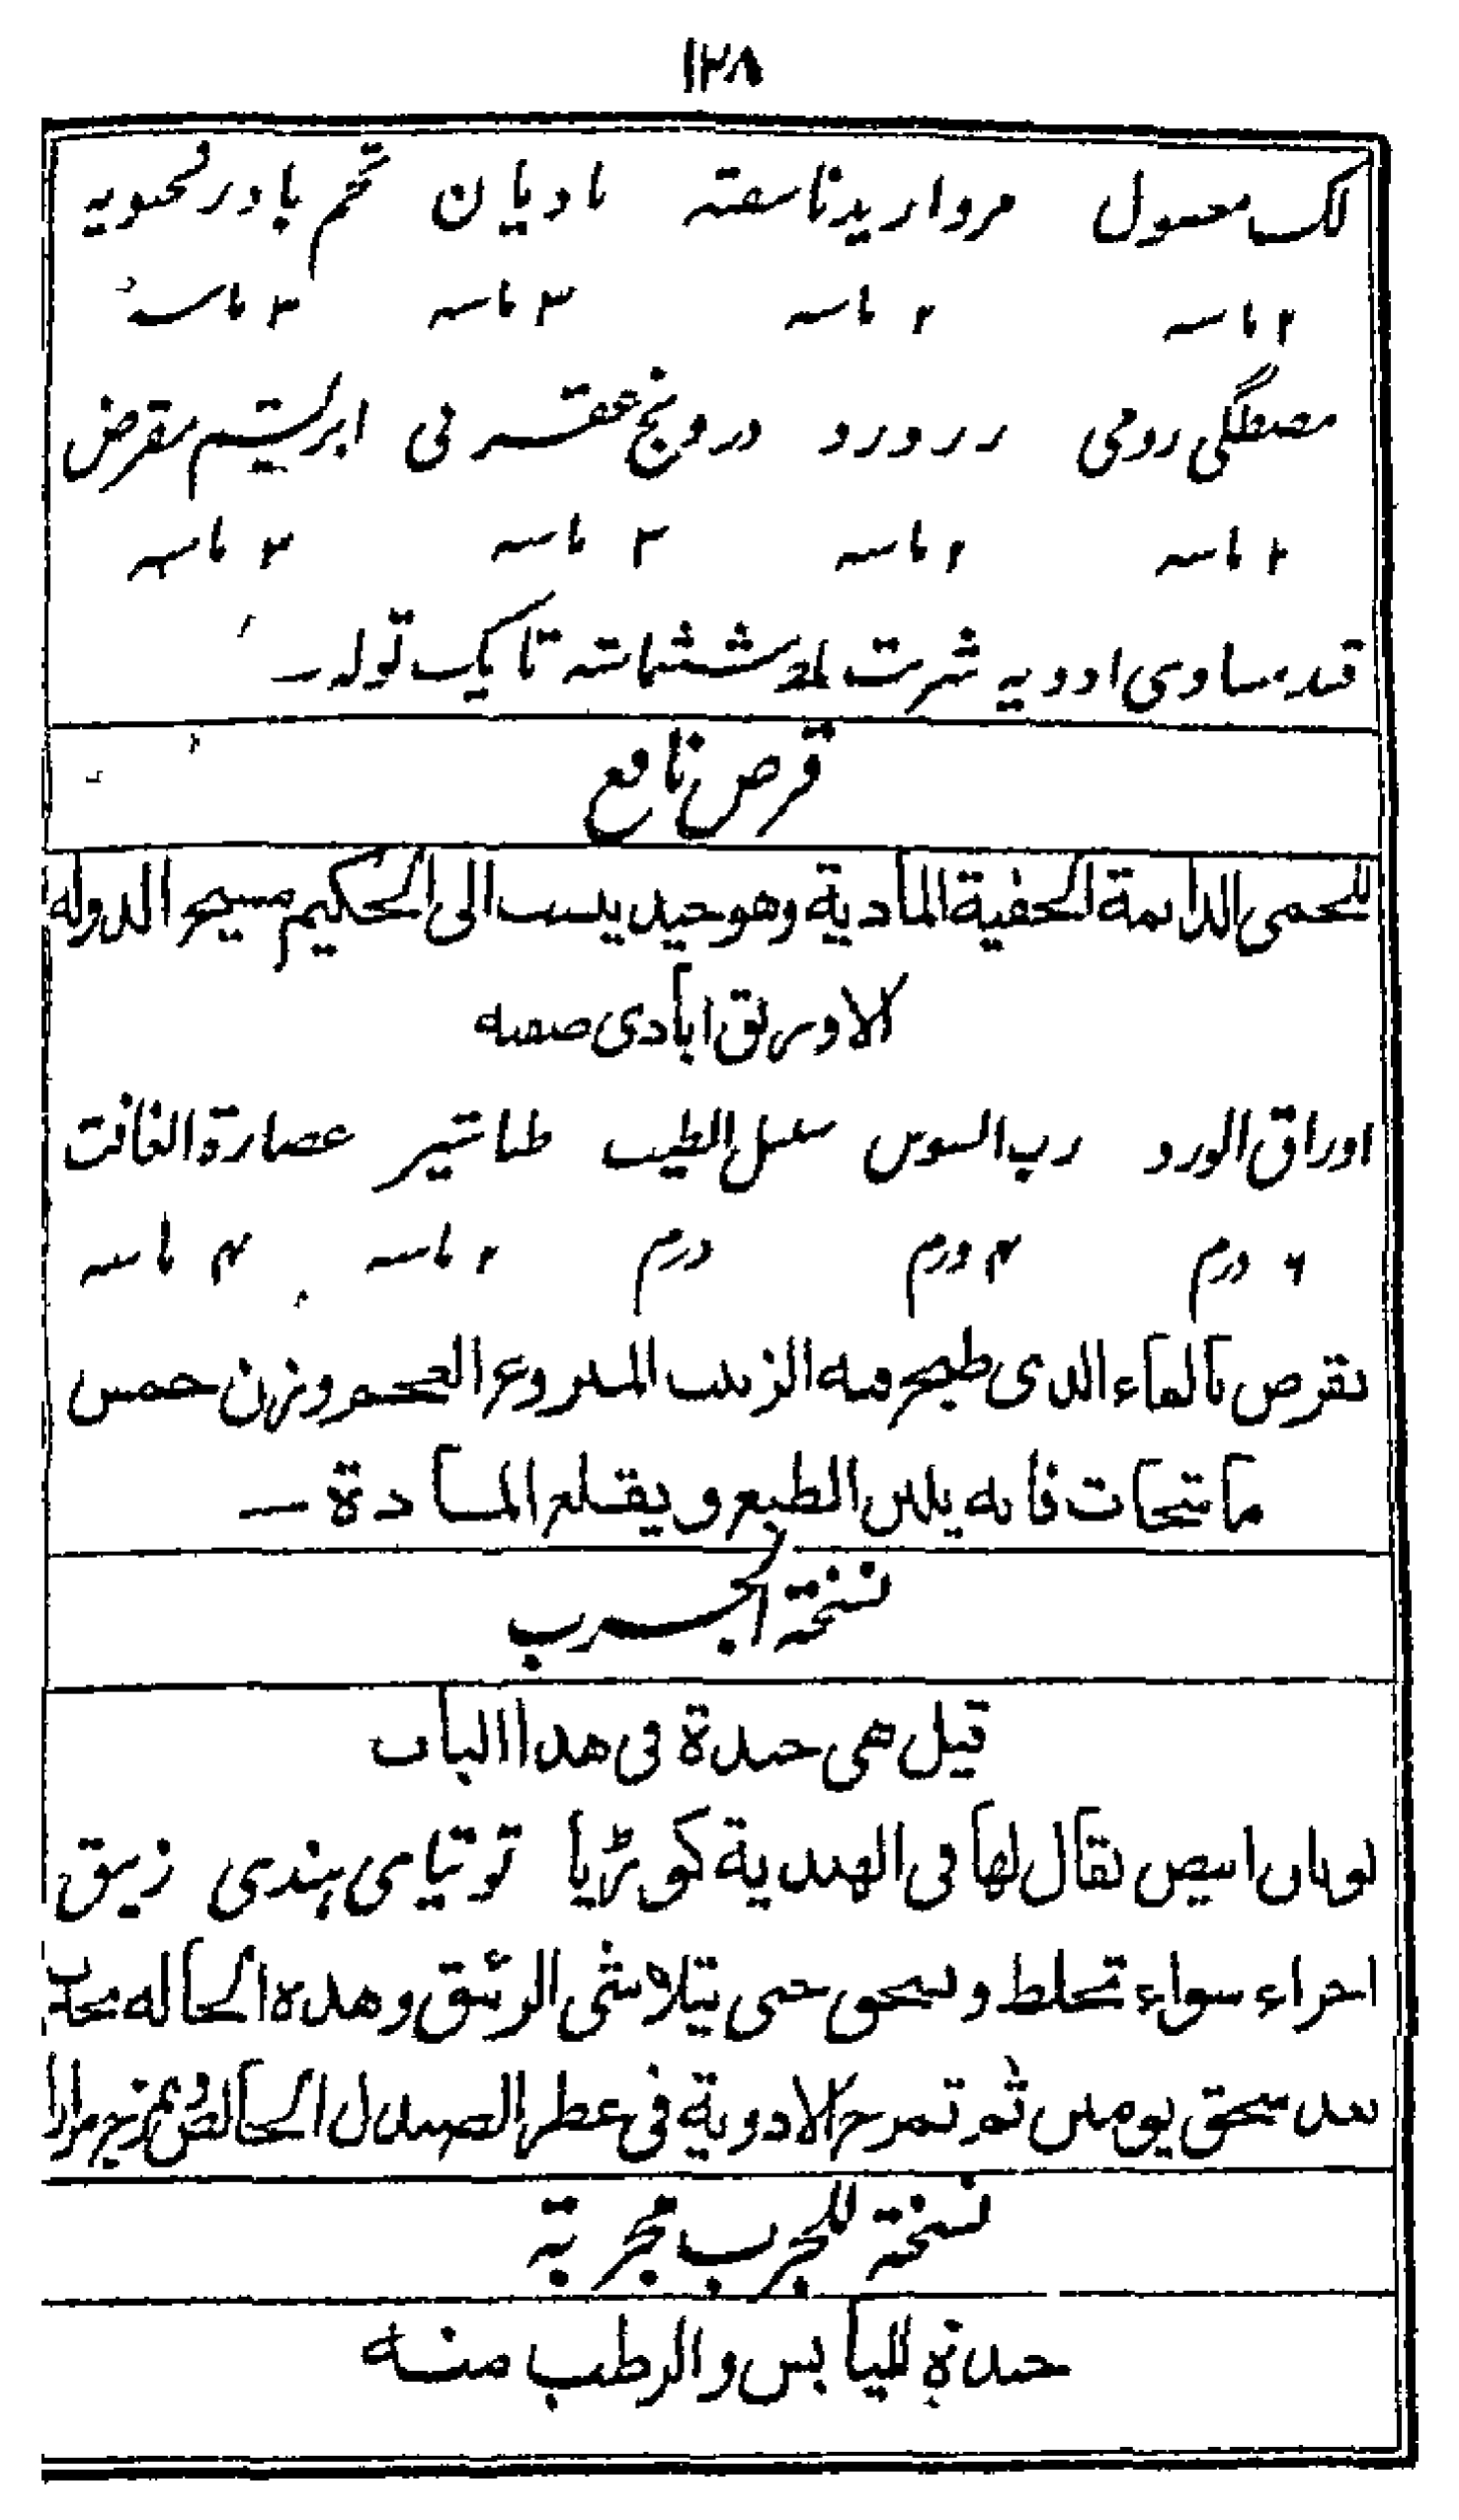 ۱۲۸
لک مغسول مروارید ناسفته بادیان تخم بادرنجبویه
۲ ماسه ۲ ماسه ۳ ماسه ۳ ماسه
مصطگی رومی زرورد درونج عقربی ابریشم مقرض
۲ ماسه ۲ ماسه ۳ ماسه ۳ ماسه
قند مساوی ادویه شربت ششماشه تا یک توله ـ
قرص نافع
للحمى الدائمة الخفية المادية وهو جيد ينسب الى الحكيم مسيح الدوله
الاورنق ابادى صفته
اوراق الورد رب السوس سنبل الطيب طباشير عصارة الغافت
۶ درم ۴ درم درم ۲ ماسه ۴ ماسه
تقرص بالماء الذى طبخ فيه الزبيب المنزوع العجم وزن خمس
ماشجات فانه يلين الطبع ويقلع المادة ــ
نسخة الجرب
قيل هى جيدة فى هذا الباب
لوبان ابيض يقال لها فى الهندية كوڑيا توتياى ہندى زيبق
اجزاء سواء تخلط وتسحق حتى يتلاشى الزئبق وهذه الحاله تحدث
بعد سحق يومين ثم تمرخ الادوية فى عطر الصندل الخالص
نسخة للجرب مجربة
جيدة لليابس والرطب منه